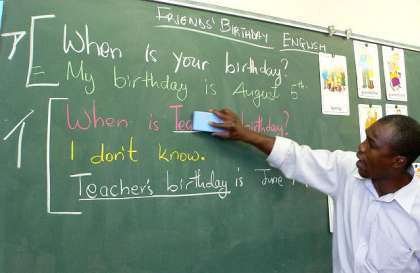 FRIENDS' BIRTHDAY ENGLISH
ア When is your birthday?
E My birthday is August 5th.
イ When is birthday?
I don't know.
Teacher's birthday is June